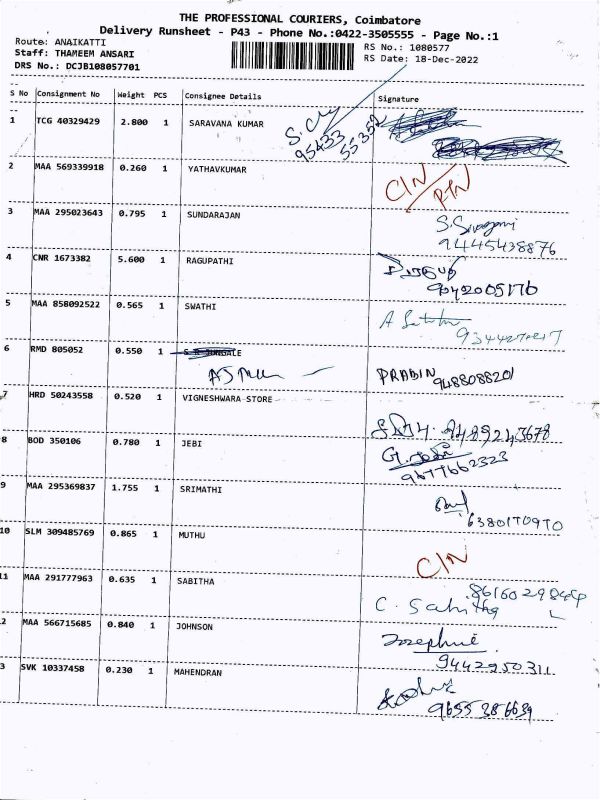 THE PROFESSIONAL COURIERS, Coimbatore
Delivery Runsheet - P43 - Phone No.:0422-3505555 - Page No.:1
Route: ANAIKATTI
Staff: THAMEEM ANSARI
DRS No.: DCJB108057701
RS No.: 1080577
RS Date: 18-Dec-2022
S No Consignment No Weight PCS Consignee Details Signature
1 TCG 40329429 2.800 1 SARAVANA KUMAR
95433 55352
2 MAA 569339918 0.260 1 YATHAVKUMAR CIN/RTN
3 MAA 295023643 0.795 1 SUNDARAJAN
9445438876
4 CNR 1673382 5.600 1 RAGUPATHI
5 MAA 858092522 0.565 1 SWATHI
6 RMD 805052 0.550 1
PRABIN
9488088201
7 HRD 50243558 0.520 1 VIGNESHWARA STORE
9489243678
8 BOD 350106 0.780 1 JEBI
9677662323
9 MAA 295369837 1.755 1 SRIMATHI
6380170970
10 SLM 309485769 0.865 1 MUTHU CIN
11 MAA 291777963 0.635 1 SABITHA
C. Sabitha
2 MAA 566715685 0.840 1 JOHNSON
Josephine
9442950311
3 SVK 10337458 0.230 1 MAHENDRAN
9655386639